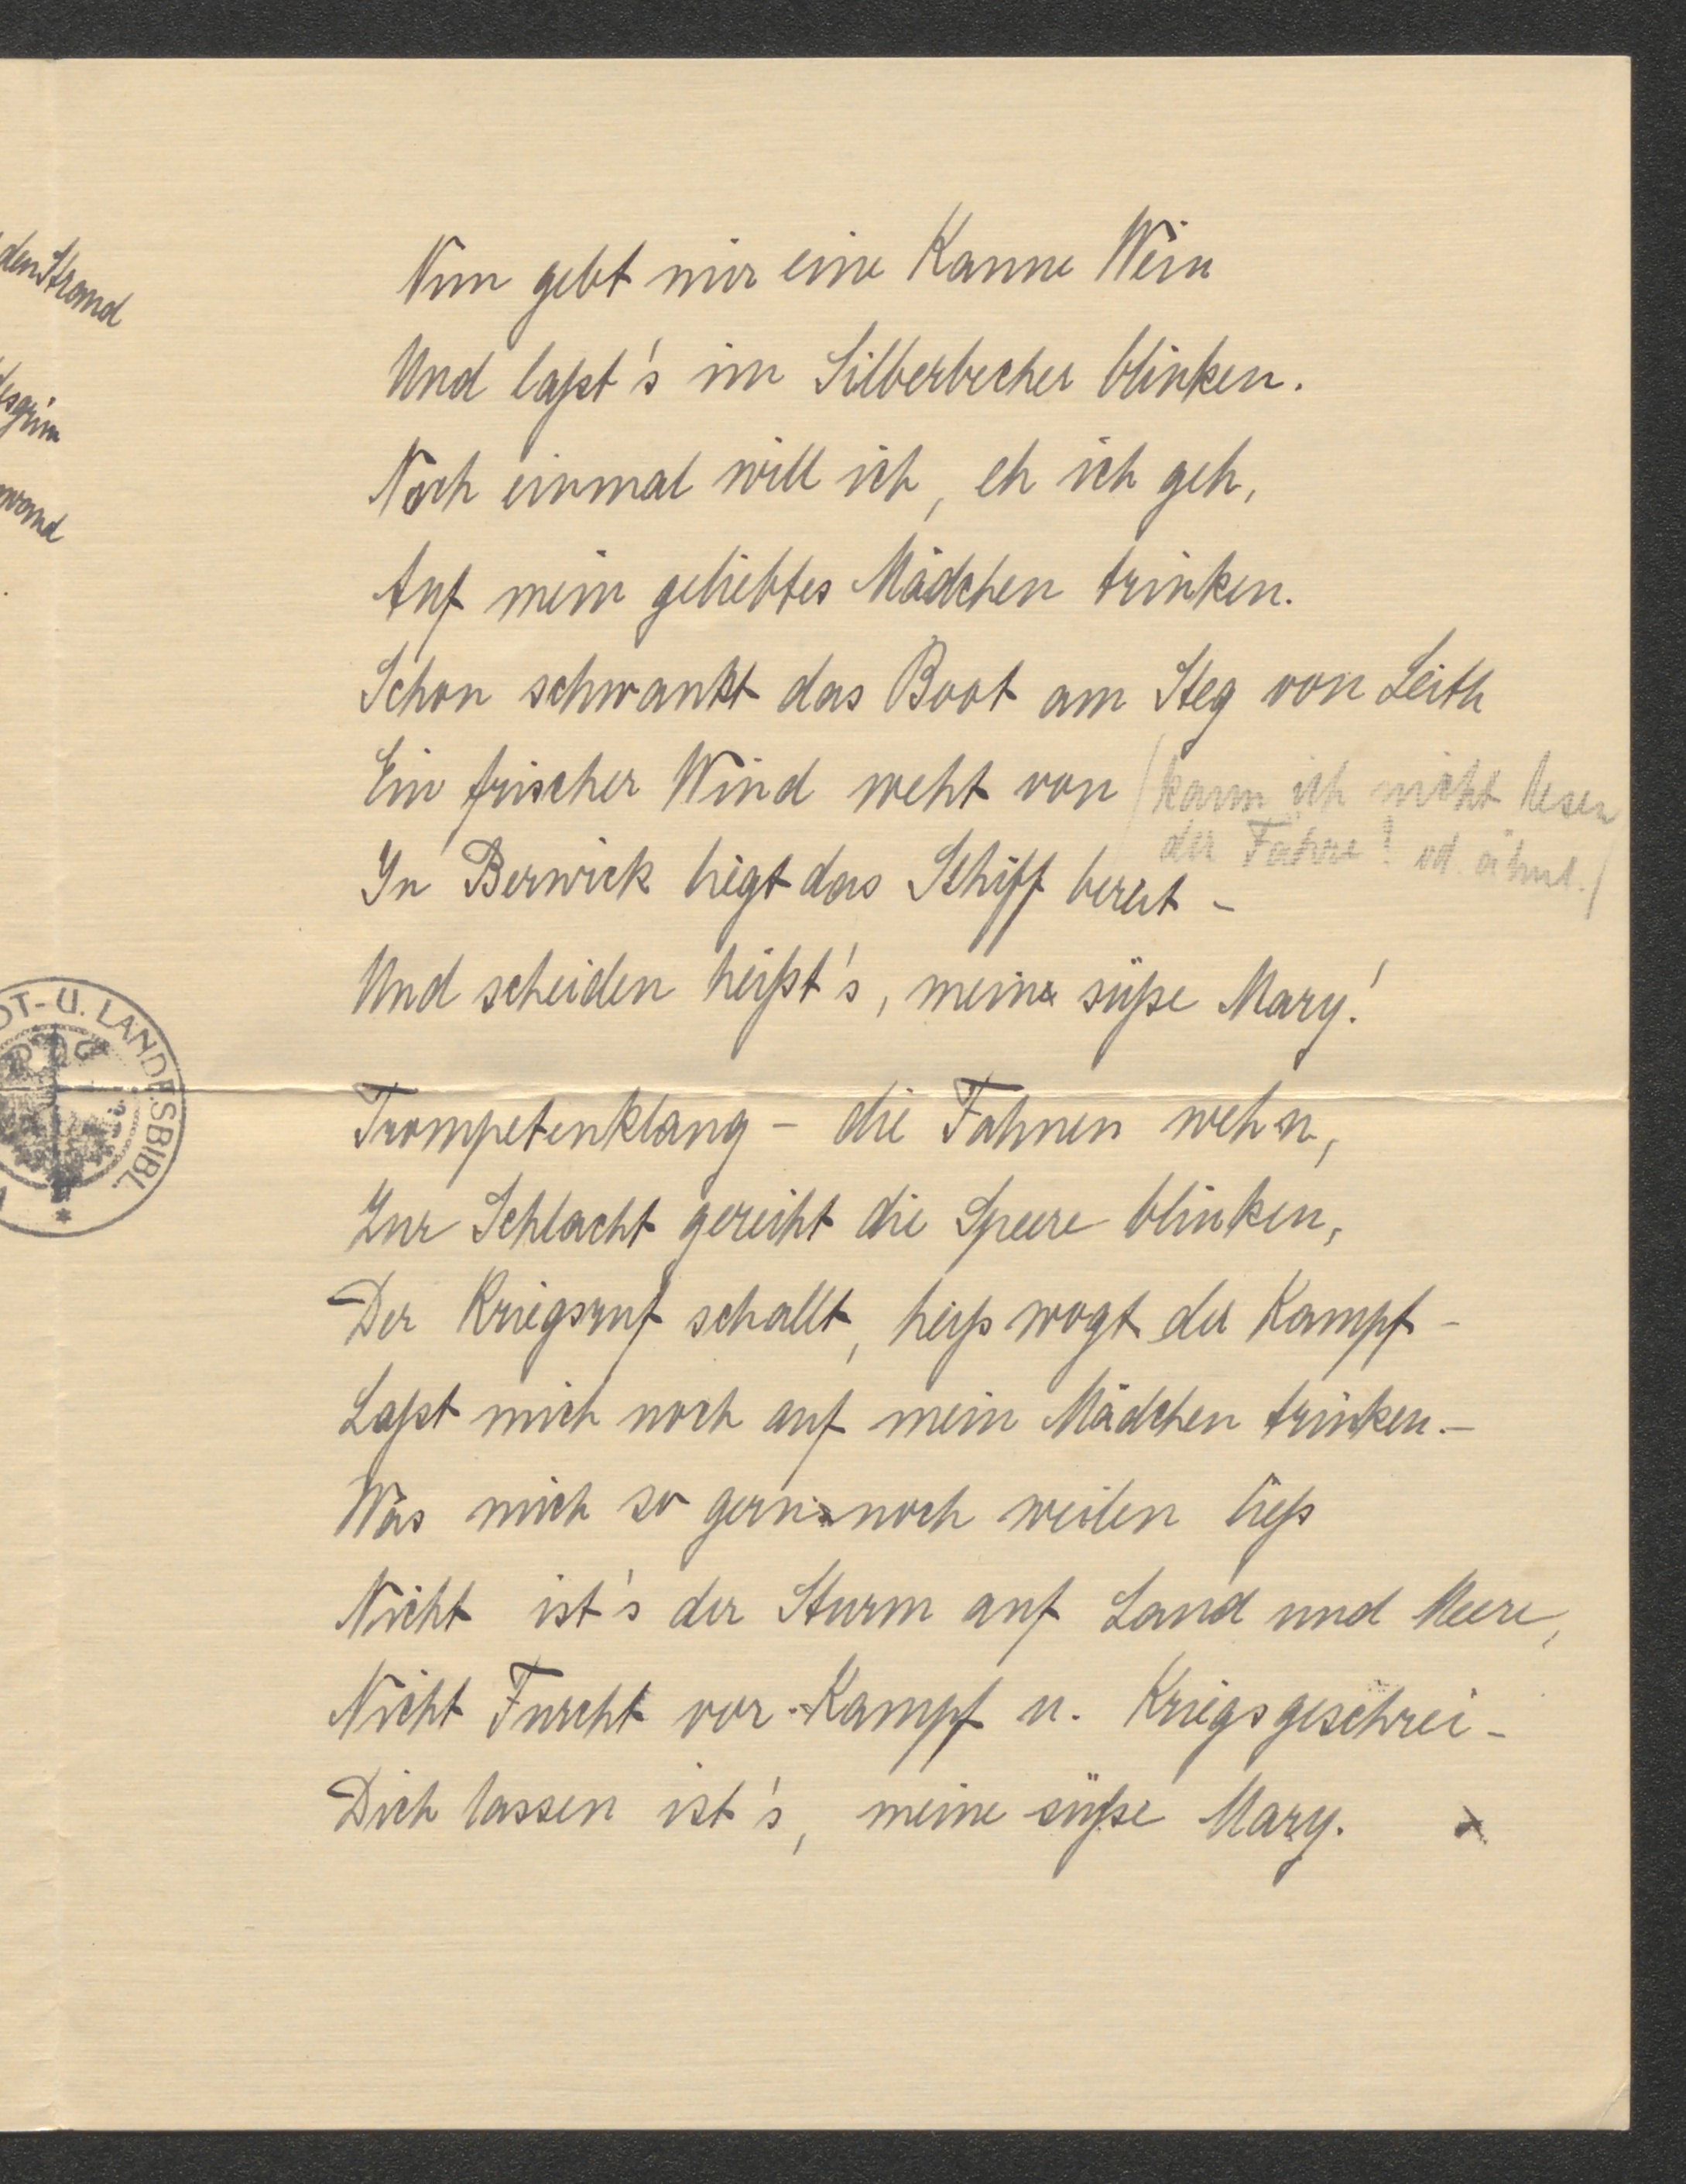 den Strand
Nun gebt mir eine Kanne Wein
Und laßt's im Silberbecher blinken.
Noch einmal will ich, eh ich geh,
Auf mein geliebtes Mädchen trinken.
Schon schwankt das Boot am Steg von Leith
Ein frischer Wind weht von (kann ich nicht lesen
der Fähre! od. ähnl.)
In Berwick liegt das Schiff bereit –
Und scheiden heißt's, meine süße Mary!
U. LANDESBIBL.
Trompetenklang – die Fahnen wehn,
Zur Schlacht gereiht die Speere blinken,
Der Kriegsruf schallt, heiß wogt der Kampf –
Laßt mich noch auf mein Mädchen trinken. –
Was mich so gern noch weilen ließ
Nicht ist's der Sturm auf Land und Meere,
Nicht Furcht vor Kampf u. Kriegsgeschrei –
Dich lassen ist's, meine süße Mary.